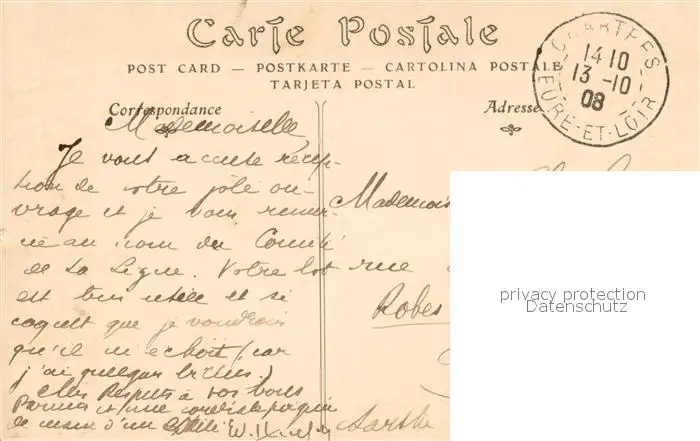 Carte Postale
POST CARD — POSTKARTE — CARTOLINA POSTALE
TARJETA POSTAL
CHARTRES
14 10
13 -10
08
EURE-ET-LOIR
Correspondance
Adresse
Mademoiselle
Je vous accuse récep-
tion de votre joli ou-
vrage et je vous remer-
cie au nom du Comité
de la Ligue. Votre lot
est très utile et si
coquet que je voudrais
qu'il m'échoit (car
j'ai quelques billets.)
Mes Respects à vos bons
Parents et une cordiale poignée
de main d'un
Mademois
rue
Robes
Sarthe
privacy protection
Datenschutz